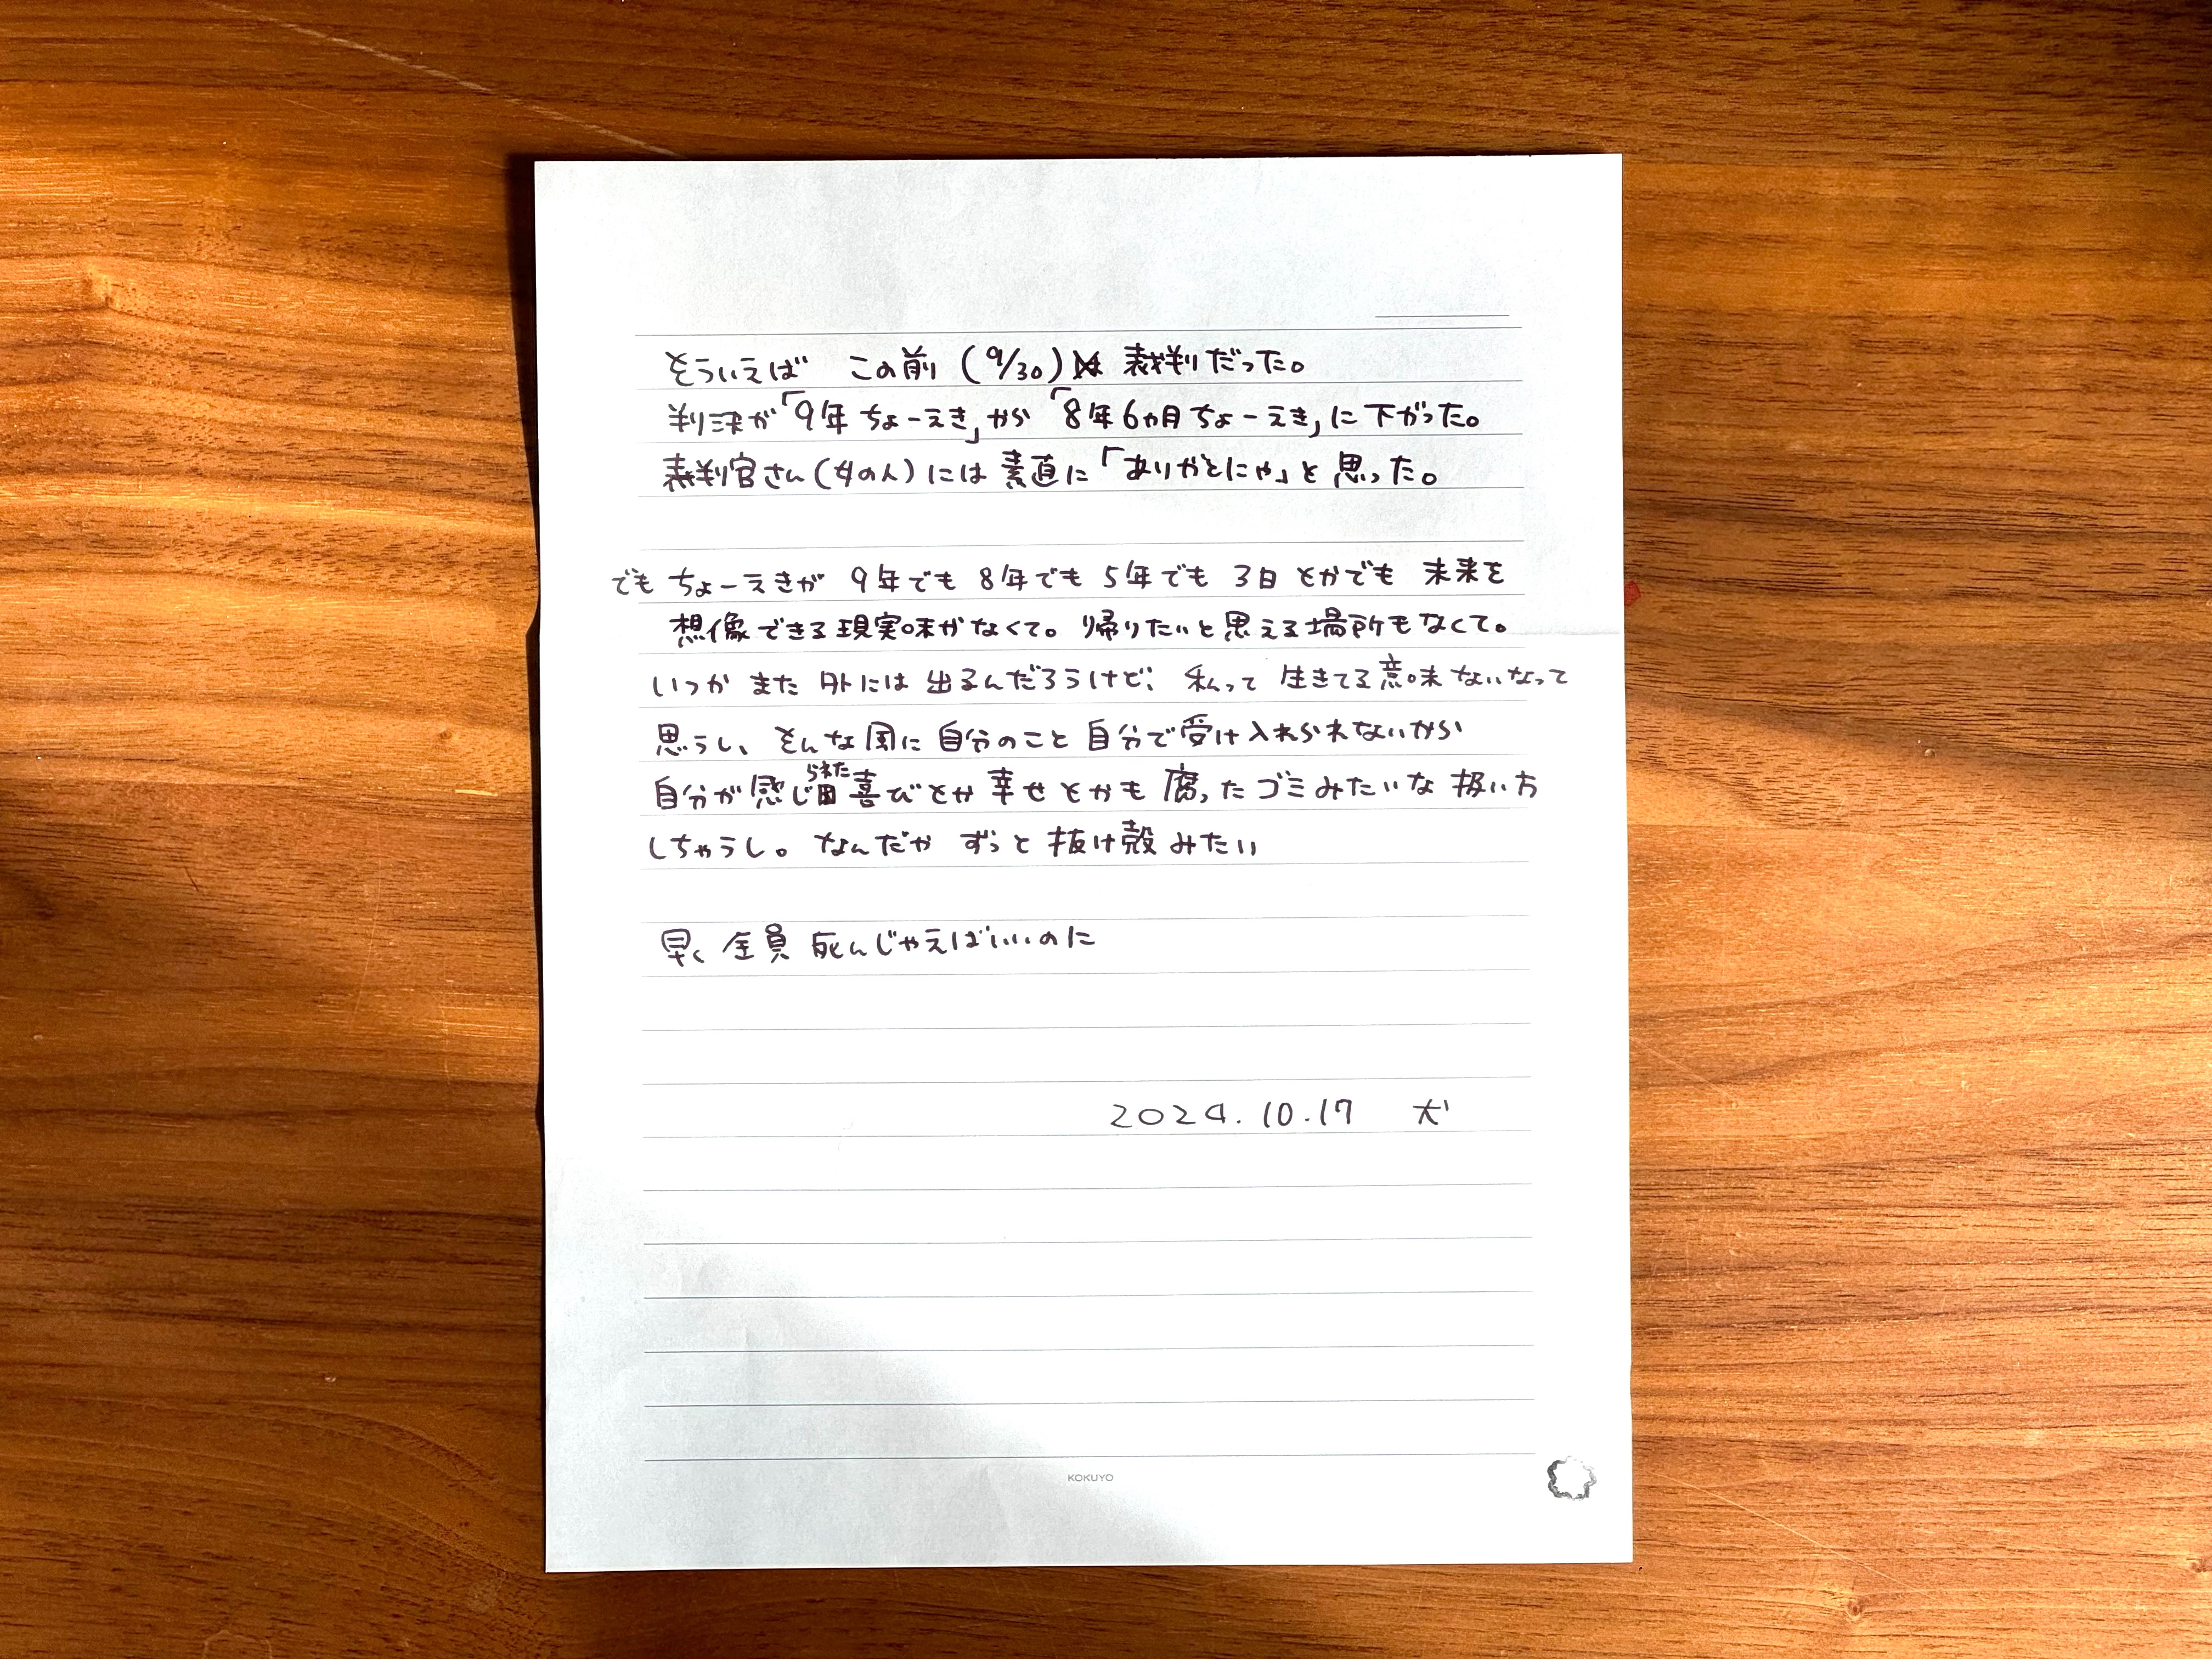 そういえば この前 (9/30) 裁判だった。
判決が「9年ちょーえき」から「8年6ヵ月ちょーえき」に下がった。
裁判官さん(女の人)には素直に「ありがとにゃ」と思った。
でも ちょーえきが 9年でも 8年でも 5年でも 3日とかでも 未来を
想像できる現実味がなくて。帰りたいと思える場所もなくて。
いつか また 外には 出るんだろうけど、私って 生きてる意味ないなって
思うし、そんな風に 自分のこと 自分で受け入れられないから
自分が感じられた喜びとか 幸せとかも 腐ったゴミみたいな 扱い方
しちゃうし。なんだか ずっと 抜け殻みたい
早く 全員 死んじゃえばいいのに
2024.10.17 犬
KOKUYO